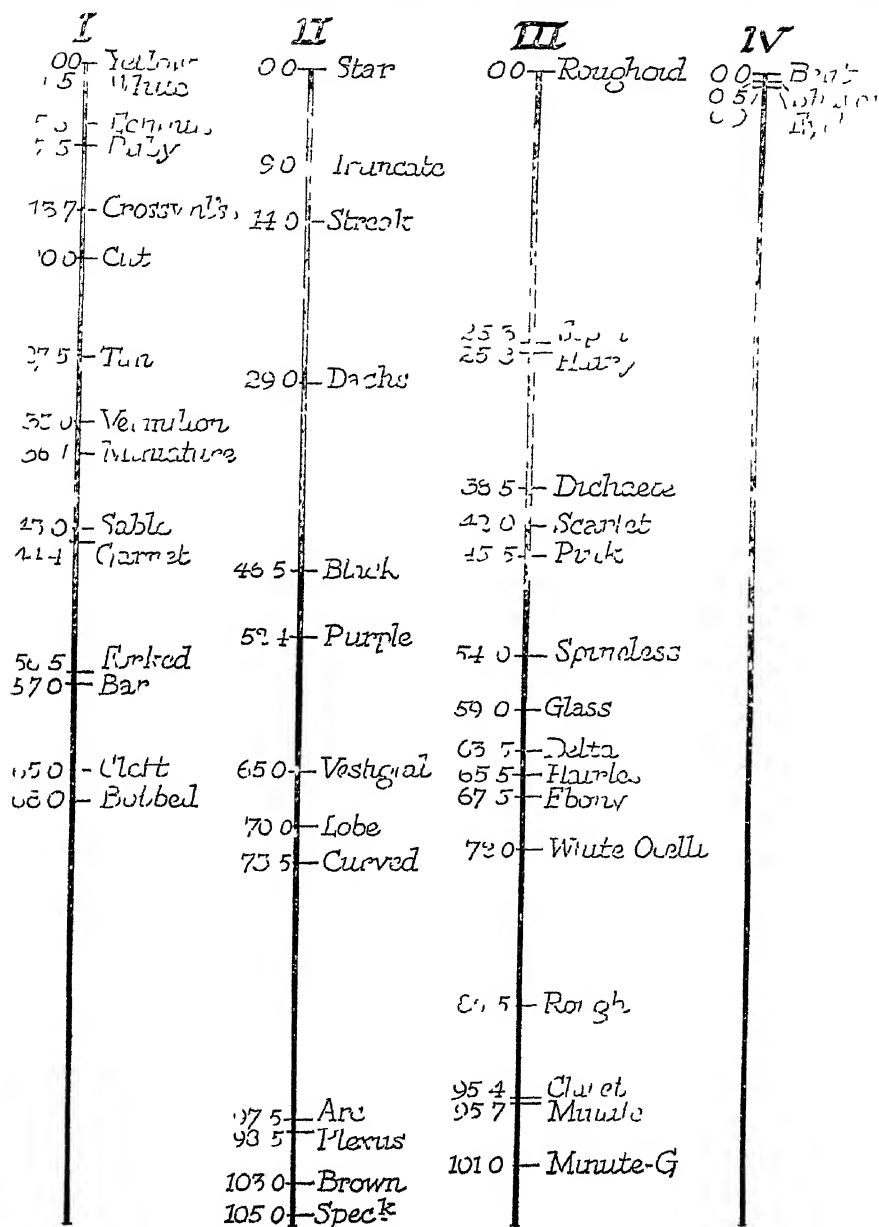 I
00 Yellow
15 White
Ruby
137 Crossvnl's.
00 Cut
75 Tan
Vermilion
361 Miniature
430 Sable
444 Garnet
565 Forked
570 Bar
650 Cleft
680 Bobbed
II
00 Star
90 Truncate
140 Streak
290 Dachs
465 Black
524 Purple
650 Vestigial
700 Lobe
735 Curved
975 Arc
985 Plexus
1030 Brown
1050 Speck
III
00 Roughoid
253
253 Hairy
385 Dichaete
420 Scarlet
455 Pink
540 Spineless
590 Glass
635 Delta
655 Hairles
675 Ebony
720 White Ocelli
5 Rough
954 Claret
957 Minute
1010 Minute-G
IV
00 Bent
05